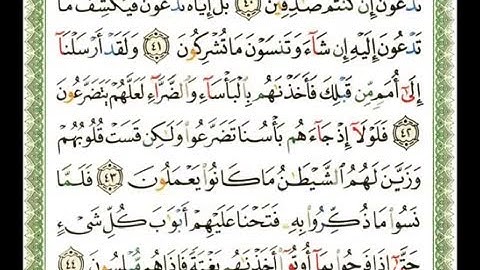 تَدْعُونَ إِن كُنتُمْ صَٰدِقِينَ ٤٠ بَلْ إِيَّاهُ تَدْعُونَ فَيَكْشِفُ مَا
تَدْعُونَ إِلَيْهِ إِن شَآءَ وَتَنسَوْنَ مَا تُشْرِكُونَ ٤١ وَلَقَدْ أَرْسَلْنَآ
إِلَىٰٓ أُمَمٍ مِّن قَبْلِكَ فَأَخَذْنَٰهُم بِالْبَأْسَآءِ وَالضَّرَّآءِ لَعَلَّهُمْ يَتَضَرَّعُونَ
٤٢ فَلَوْلَآ إِذْ جَآءَهُم بَأْسُنَا تَضَرَّعُوا۟ وَلَٰكِن قَسَتْ قُلُوبُهُمْ
وَزَيَّنَ لَهُمُ الشَّيْطَٰنُ مَا كَانُوا۟ يَعْمَلُونَ ٤٣ فَلَمَّا
نَسُوا۟ مَا ذُكِّرُوا۟ بِهِۦ فَتَحْنَا عَلَيْهِمْ أَبْوَٰبَ كُلِّ شَىْءٍ
حَتَّىٰٓ إِذَا فَرِحُوا۟ بِمَآ أُوتُوٓا۟ أَخَذْنَٰهُم بَغْتَةً فَإِذَا هُم مُّبْلِسُونَ ٤٤